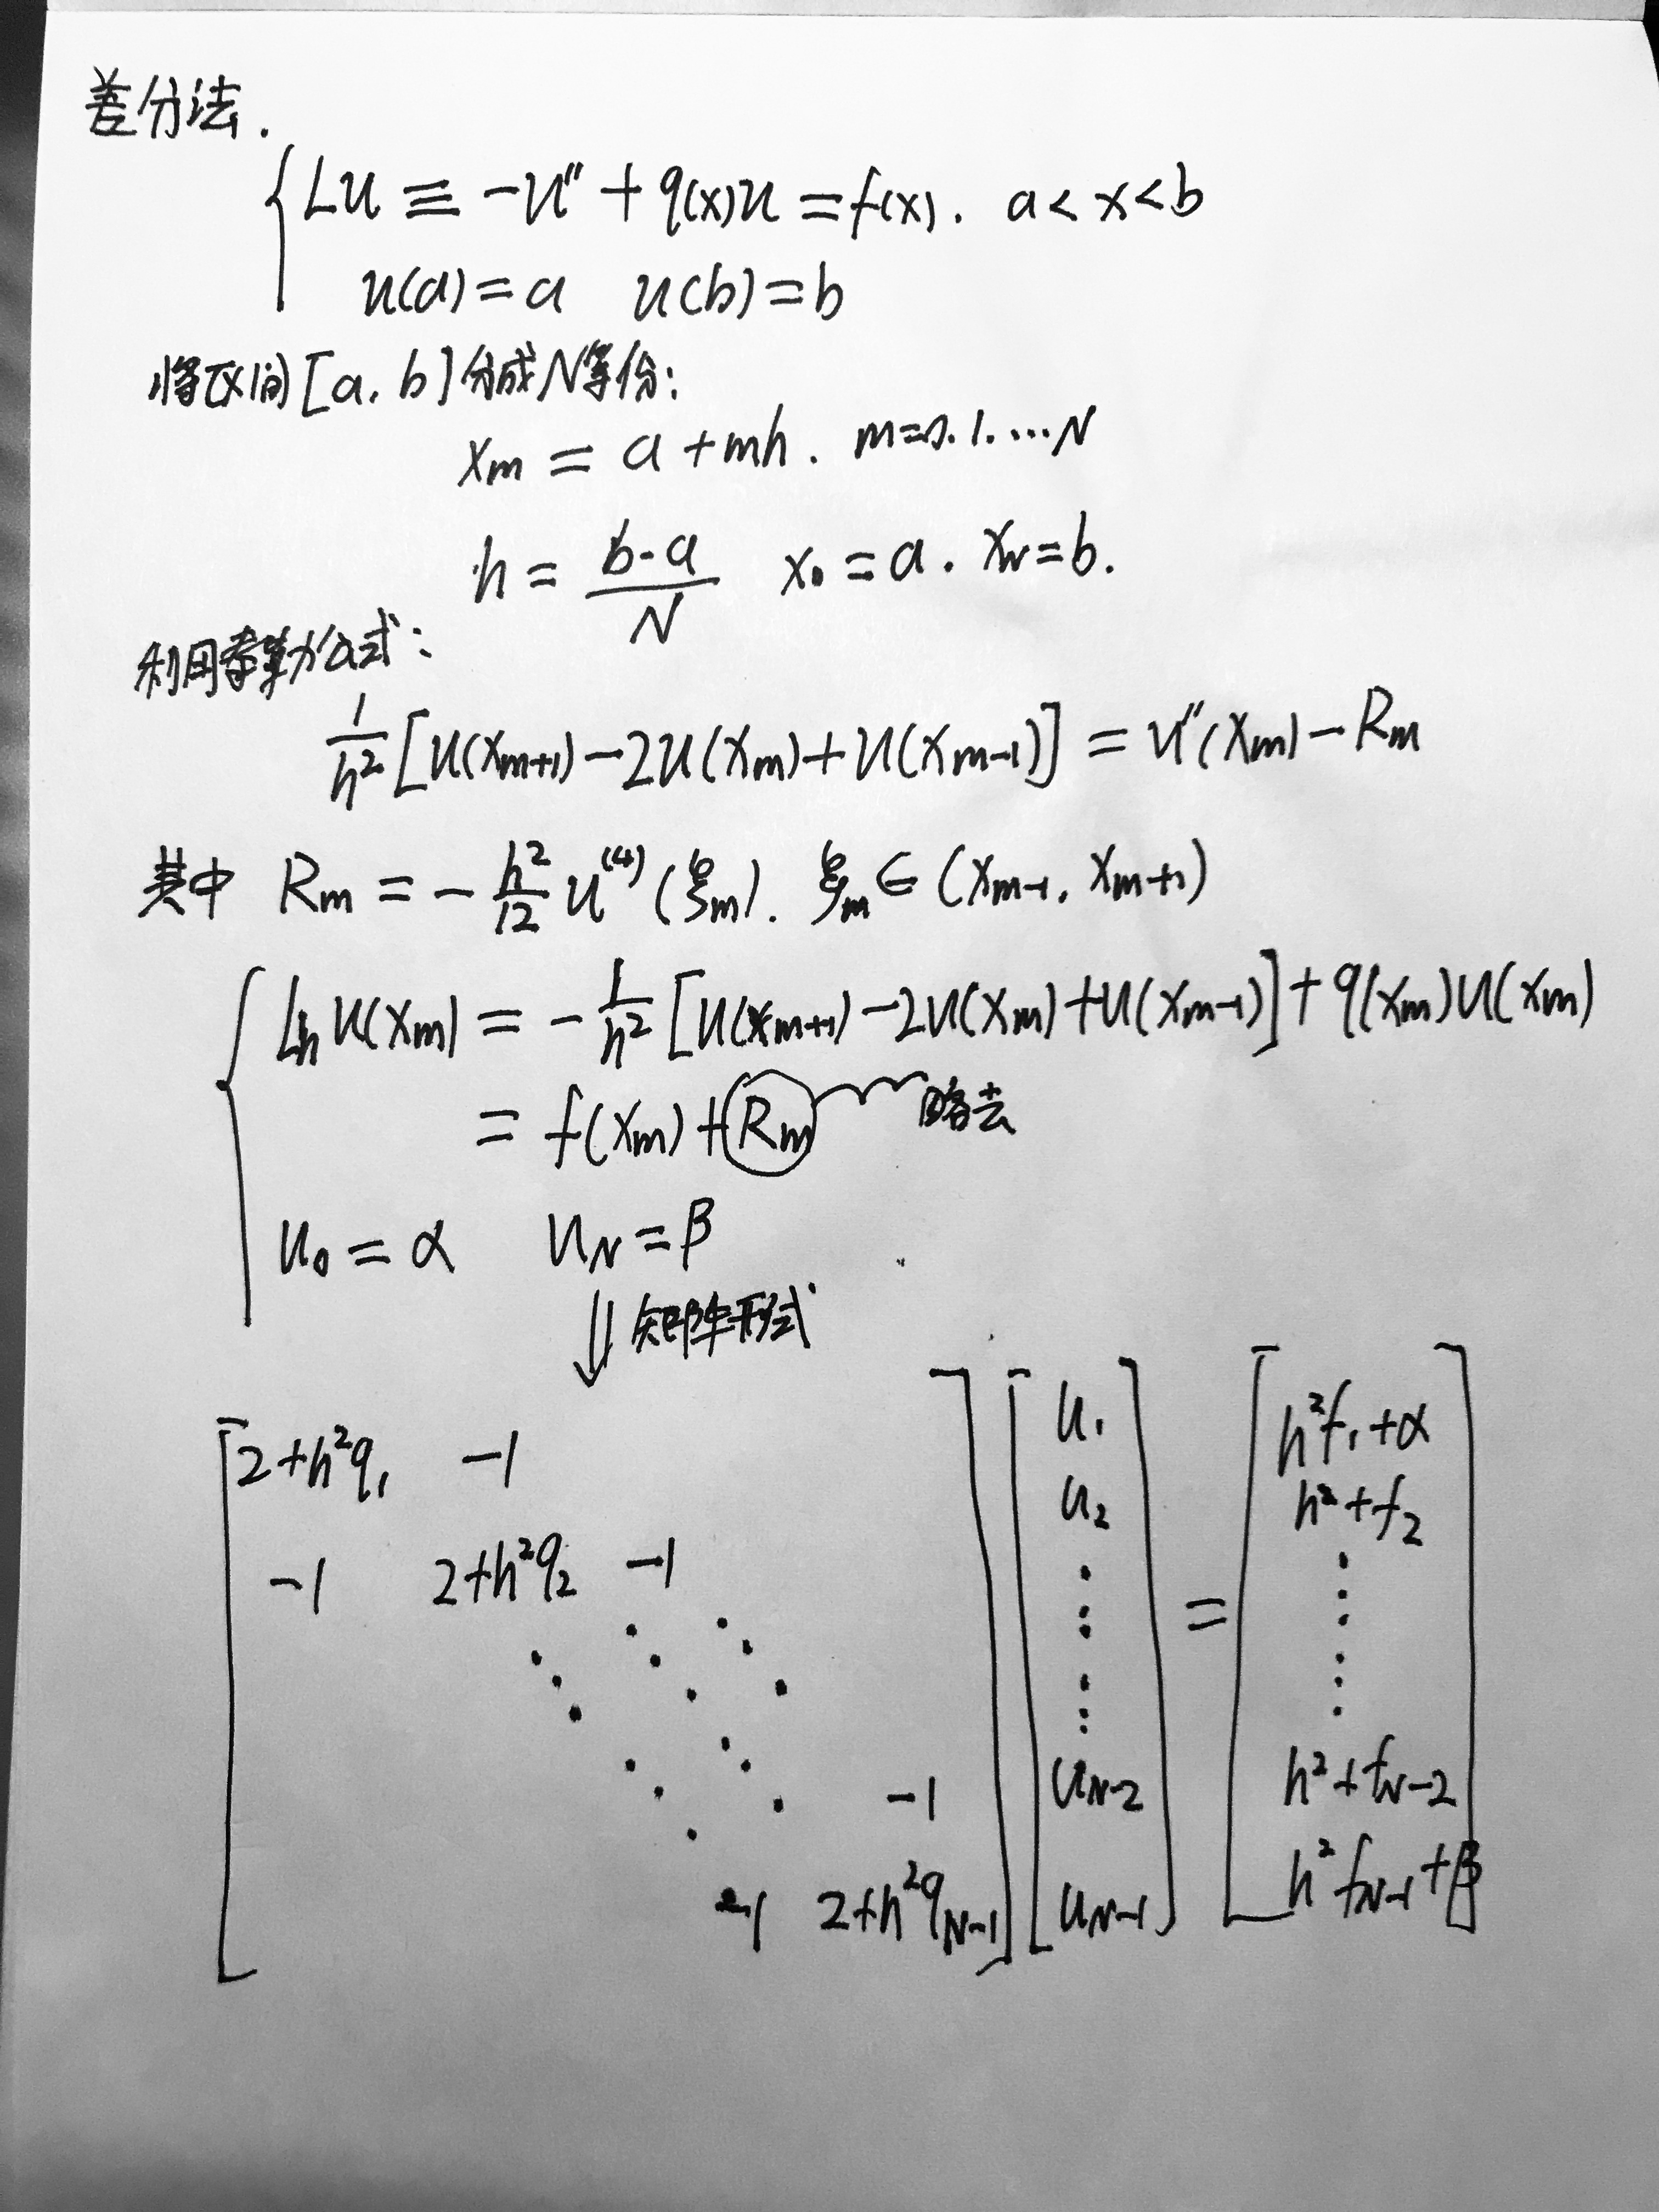 差分法.
Lu ≡ -u'' + q(x)u = f(x). a < x < b
u(a) = a u(b) = b
将区间[a, b]分成N等份:
xₘ = a + mh. m=0.1.…N
h = (b-a)/N x₀ = a. x_N = b.
利用泰勒公式:
1/h² [u(xₘ₊₁) - 2u(xₘ) + u(xₘ₋₁)] = u''(xₘ) - Rₘ
其中 Rₘ = - h²/12 u⁽⁴⁾(ξₘ). ξₘ ∈ (xₘ₋₁, xₘ₊₁)
Lₕu(xₘ) = - 1/h² [u(xₘ₊₁) - 2u(xₘ) + u(xₘ₋₁)] + q(xₘ)u(xₘ)
= f(xₘ) + Rₘ 略去
u₀ = α u_N = β
⇓ 矩阵形式
2+h²q₁ -1 u₁ h²f₁+α
-1 2+h²q₂ -1 u₂ = h²+f₂
-1 u_{N-2} h²+f_{N-2}
-1 2+h²q_{N-1} u_{N-1} h²f_{N-1}+β